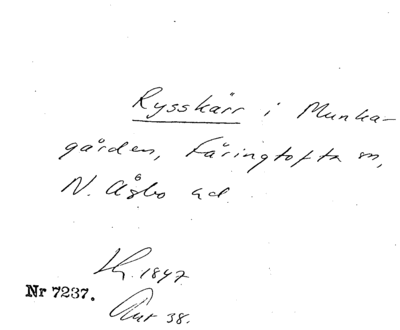 Rysskärr i Munka-
gården, Färingtofta sn,
N. Åsbo hd.
1847.
Nr 7237.
38.